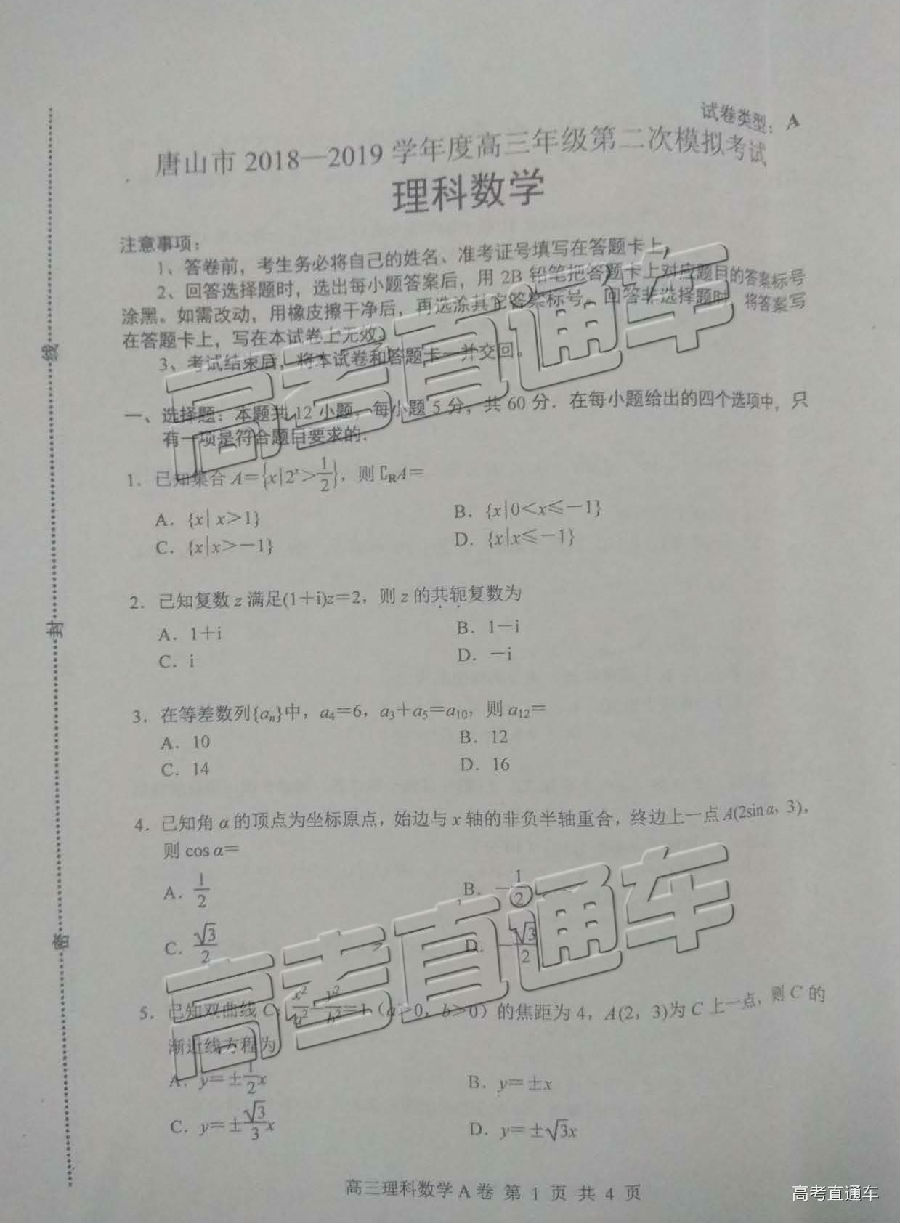 试卷类型：A
唐山市 2018—2019 学年度高三年级第二次模拟考试
理科数学
注意事项：
1、答卷前，考生务必将自己的姓名、准考证号填写在答题卡上。
2、回答选择题时，选出每小题答案后，用 2B 铅笔把答题卡上对应题目的答案标号
涂黑。如需改动，用橡皮擦干净后，再选涂其它答案标号。回答非选择题时，将答案写
在答题卡上，写在本试卷上无效。
3、考试结束后，将本试卷和答题卡一并交回。
一、选择题：本题共 12 小题，每小题 5 分，共 60 分．在每小题给出的四个选项中，只
有一项是符合题目要求的．
1．已知集合 A={x|2ˣ>1/2}，则∁RA=
A．{x| x>1}
B．{x|0<x≤-1}
C．{x|x>-1}
D．{x|x≤-1}
2．已知复数 z 满足(1+i)z=2，则 z 的共轭复数为
A．1+i
B．1-i
C．i
D．-i
3．在等差数列{aₙ}中，a₄=6，a₃+a₅=a₁₀，则 a₁₂=
A．10
B．12
C．14
D．16
4．已知角 α 的顶点为坐标原点，始边与 x 轴的非负半轴重合，终边上一点 A(2sin α，3)，
则 cos α=
A．1/2
B．-1/2
C．√3/2
D．-√3/2
5．已知双曲线 C：x²/a²-y²/b²=1（a>0，b>0）的焦距为 4，A(2，3)为 C 上一点，则 C 的
渐近线方程为
A．y=±1/2x
B．y=±x
C．y=±√3/3x
D．y=±√3x
高三理科数学 A 卷 第 1 页 共 4 页
线
封
密
高考直通车
高考直通车
高考直通车